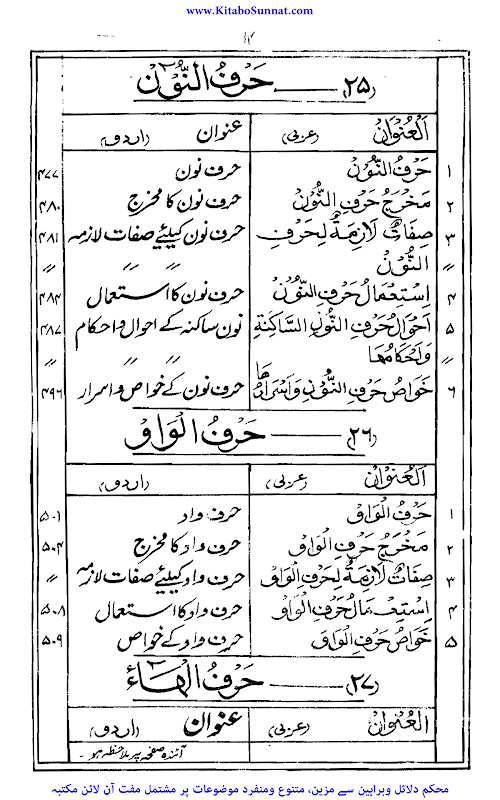 www.KitaboSunnat.com
۱۲
(۲۵) ——— حَرْفُ النُّوْنِ
اَلْعُنْوَانُ (عربی) عنوان (اردو)
۱ حَرْفُ النُّوْنِ حرف نون ۴۷۷
۲ مَخْرَجُ حَرْفِ النُّوْنِ حرف نون کا مخرج ۴۸۰
۳ صِفَاتٌ لَازِمَةٌ لِحَرْفِ حرف نون کیلئے صفات لازمہ ۴۸۱
〃 النُّوْنِ 〃 〃 〃 〃
۴ اِسْتِعْمَالُ حَرْفِ النُّوْنِ حرف نون کا استعمال ۴۸۴
۵ اَحْوَالُ حَرْفِ النُّوْنِ السَّاكِنَةِ نون ساکنہ کے احوال و احکام ۴۸۷
〃 وَاَحْكَامُهَا 〃 〃 〃
۶ خَوَاصُّ حَرْفِ النُّوْنِ وَاَسْرَارُهَا حرف نون کے خواص و اسرار ۴۹۶
(۲۶) ——— حَرْفُ الْوَاوِ
اَلْعُنْوَانُ (عربی) عنوان (اردو)
۱ حَرْفُ الْوَاوِ حرف واد ۵۰۱
۲ مَخْرَجُ حَرْفِ الْوَاوِ حرف واد کا مخرج ۵۰۴
۳ صِفَاتٌ لَازِمَةٌ لِحَرْفِ الْوَاوِ حرف واد کیلئے صفات لازمہ 〃
۴ اِسْتِعْمَالُ حَرْفِ الْوَاوِ حرف واد کا استعمال ۵۰۸
۵ خَوَاصُّ حَرْفِ الْوَاوِ حرف واد کے خواص ۵۰۹
(۲۷) ——— حَرْفُ الْهَاءِ
اَلْعُنْوَانُ (عربی) عنوان (اردو)
آئندہ صفحہ پر ملاحظہ ہو۔
محکم دلائل وبراہین سے مزین، متنوع ومنفرد موضوعات پر مشتمل مفت آن لائن مکتبہ